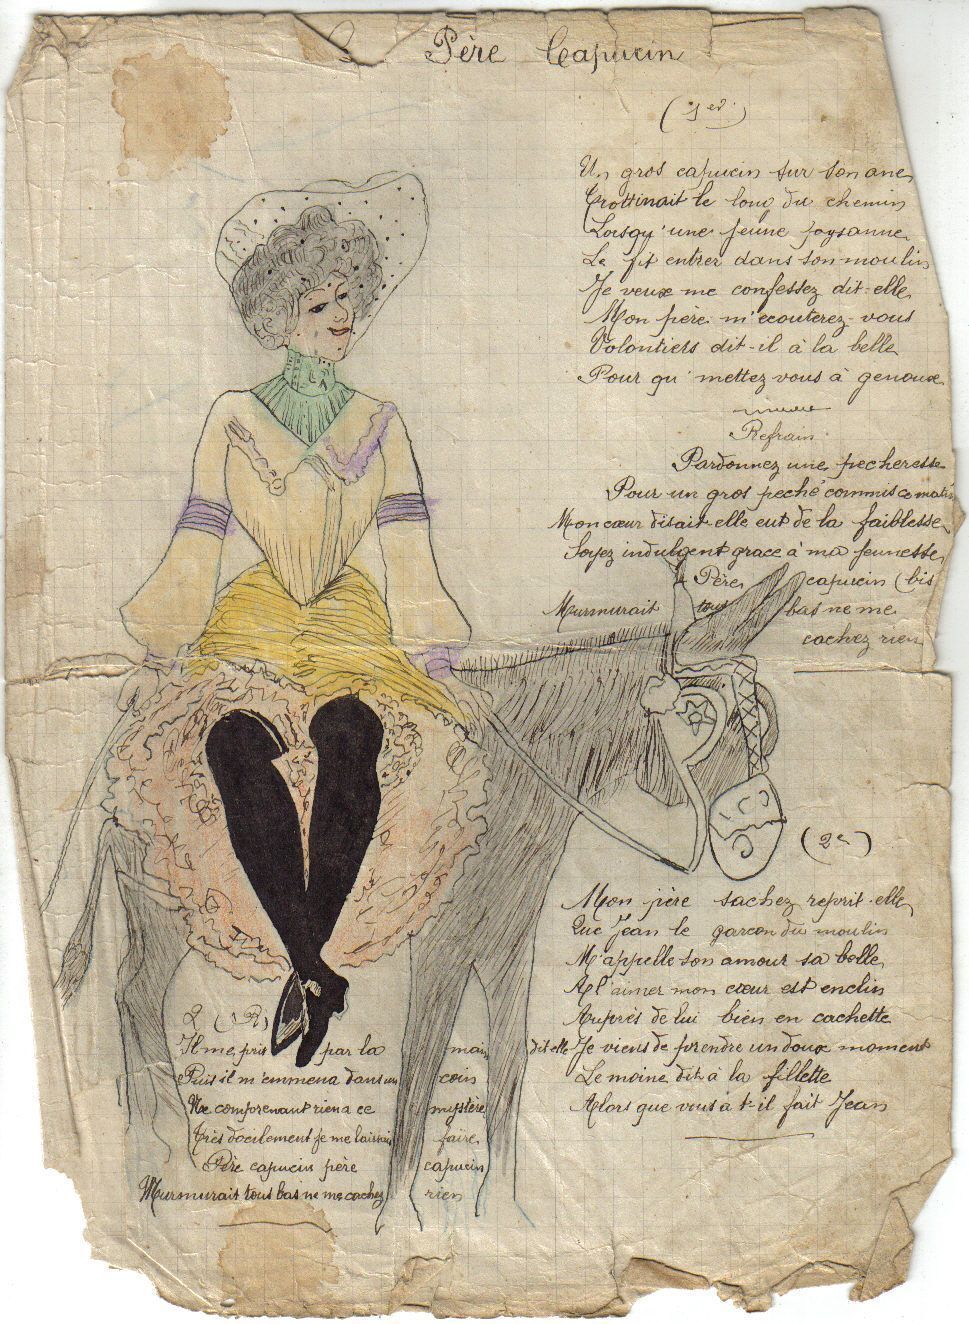 Père Capucin
(1er)
Un gros capucin sur son ane
Trottinait le long du chemin
Lorsqu'une jeune paysanne
Le fit entrer dans son moulin
Je veux me confessez dit-elle
Mon père m'ecouterez-vous
Volontiers dit-il à la belle
Pour qu' mettez vous à genoux
Refrain
Pardonnez une pecheresse
Pour un gros peché commis ce matin
Mon cœur disait-elle eut de la faiblesse
Soyez indulgent grace à ma jeunesse
Père capucin (bis
Murmurait tous bas ne me
cachez rien
(2e)
Mon père sachez reprit-elle
Que Jean le garcon du moulin
M'appelle son amour sa belle
A l'aimer mon cœur est enclin
Auprès de lui bien en cachette
dit-elle Je viens de prendre un doux moment
Le moine dit à la fillette
Alors que vous a t-il fait Jean
2 (R)
Il me pris par la main
Puis il m'emmena dans un coin
Ne comprenant rien a ce mystère
Très docilement je me laissai faire
Père capucin père capucin
Murmurait tous bas ne me cachez rien